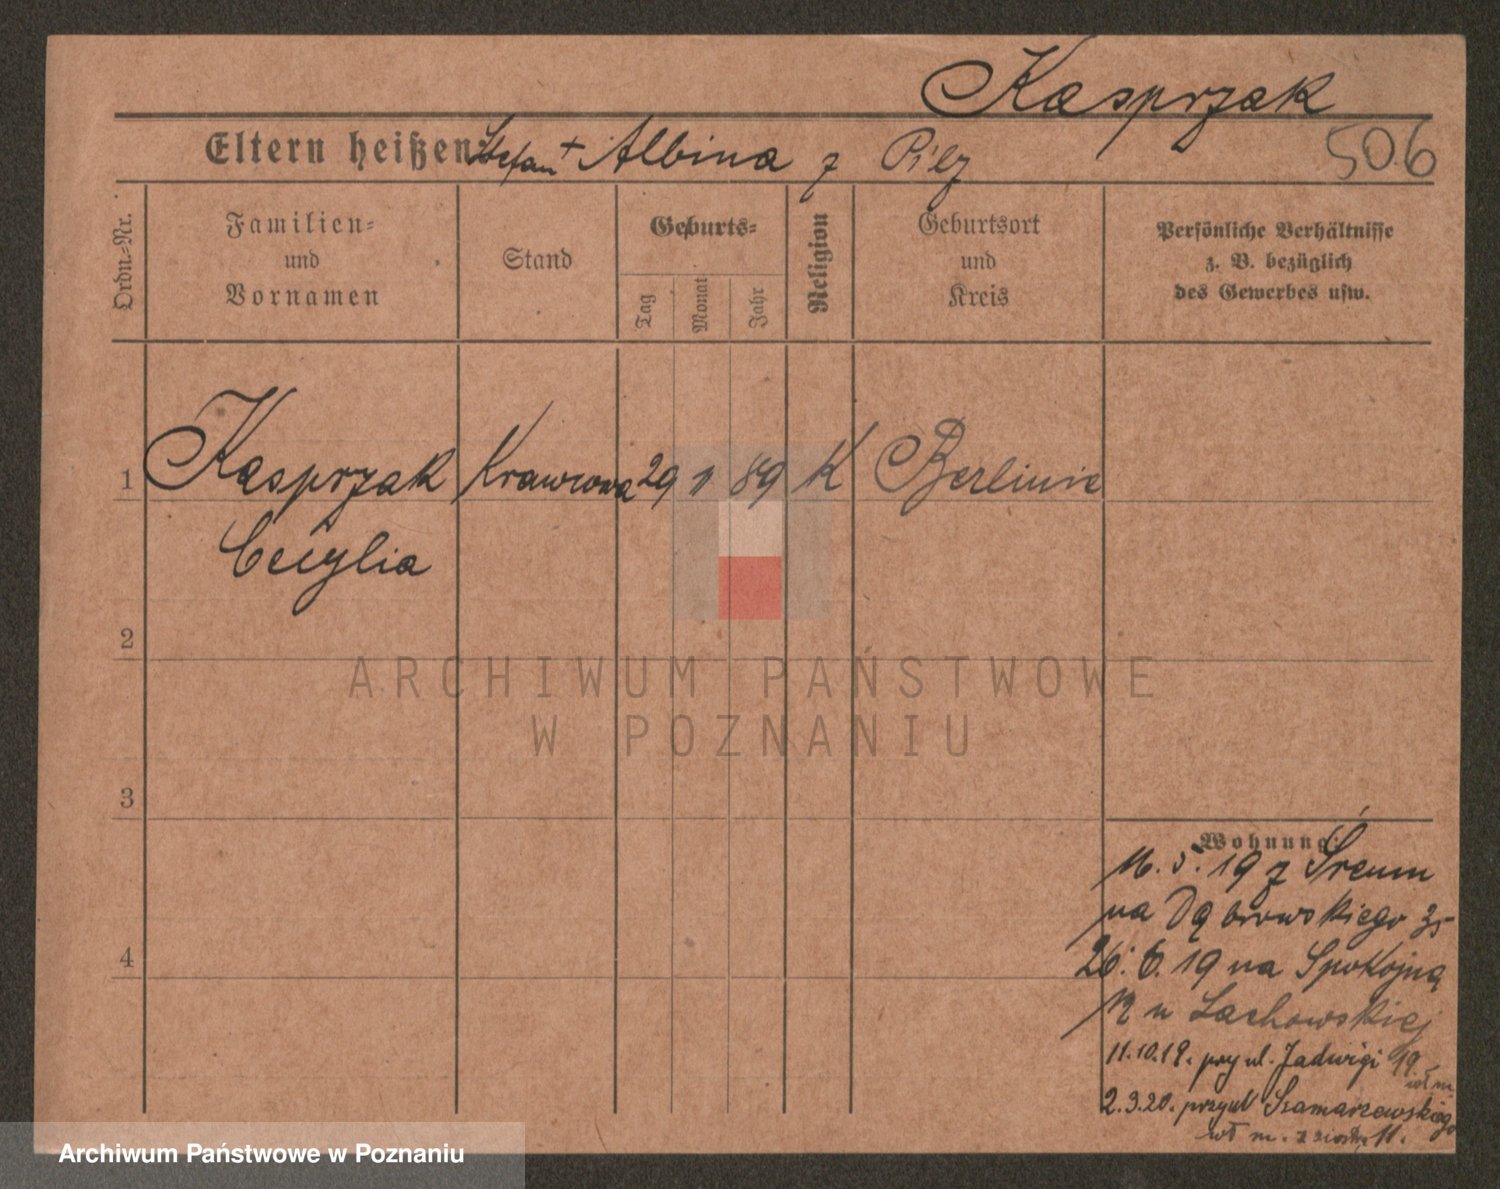 Kasprzak
506
Eltern heißen Stefan + Albina z Pilz
Ordn.-Nr.
Familien-
und
Vornamen
Stand
Geburts-
Tag
Monat
Jahr
Religion
Geburtsort
und
Kreis
Persönliche Verhältnisse
z. B. bezüglich
des Gewerbes usw.
1 Kasprzak Krawcowa 29 11 89 K Berlinie
Cecylia
2
3
4
Wohnung:
16.5.19 z Śremu
na Dąbrowskiego 35
26.6.19 na Spokojną
12 u Lachowskiej
11.10.19. przy ul. Jadwigi 19.
wł m.
2.3.20. przy ul Szamarzewskiego
wł m. z siostrą 11.
ARCHIWUM PAŃSTWOWE
W POZNANIU
Archiwum Państwowe w Poznaniu